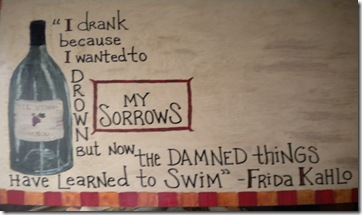 "I drank
because
I wanted to
DROWN
MY
SORROWS
But now the DAMNED things
Have Learned to Swim" -Frida Kahlo